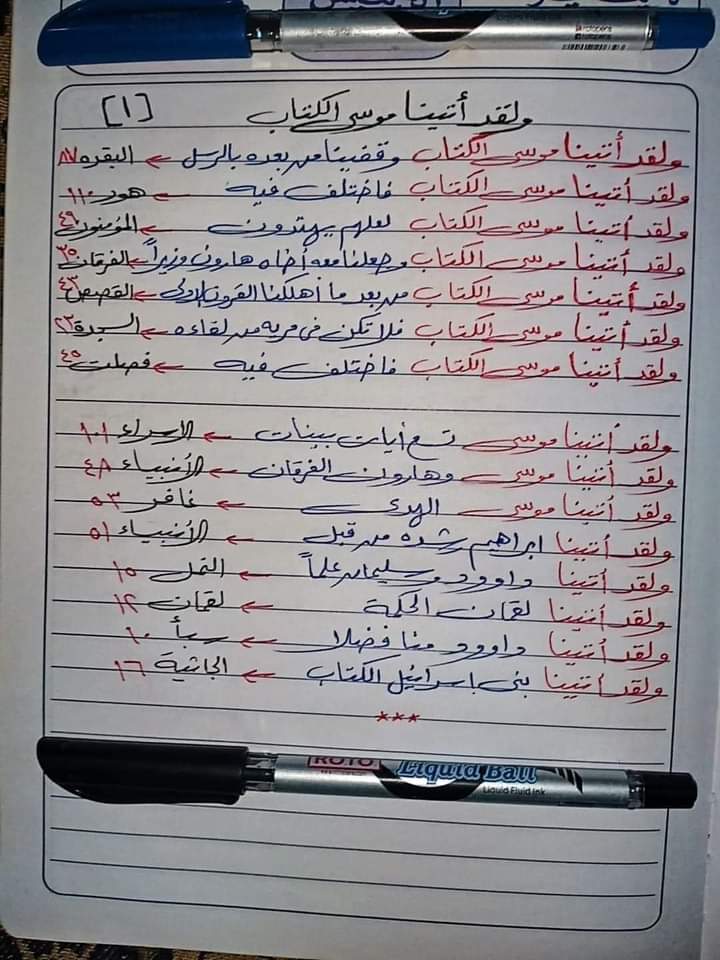 ولقد أتينا موسى الكتاب [١]
ولقد أتينا موسى الكتاب وقفينا من بعده بالرسل ← البقره ٨٧
ولقد أتينا موسى الكتاب فاختلف فيه ← هود ١١٠
ولقد أتينا موسى الكتاب لعلهم يهتدون ← المؤمنون ٤٩
ولقد أتينا موسى الكتاب وجعلنا معه أخاه هارون وزيراً ← الفرقان ٣٥
ولقد أتينا موسى الكتاب من بعد ما أهلكنا القرون الاولى ← القصص ٤٣
ولقد أتينا موسى الكتاب فلا تكن في مريه من لقاءه ← السجدة ٢٣
ولقد أتينا موسى الكتاب فاختلف فيه ← فصلت ٤٥
ولقد أتينا موسى تسع أيات بينات ← الاسراء ١٠١
ولقد أتينا موسى وهارون الفرقان ← الأنبياء ٤٨
ولقد أتينا موسى الهدى ← غافر ٥٣
ولقد أتينا ابراهيم رشده من قبل ← الأنبياء ٥١
ولقد أتينا داوود وسليمان علماً ← النمل ١٥
ولقد أتينا لقمان الحكمة ← لقمان ١٢
ولقد أتينا داوود منا فضلا ← سبأ ١٠
ولقد أتينا بنى اسرائيل الكتاب ← الجاثية ١٦
***
ROTO Liquid Ball
Liquid Fluid Ink